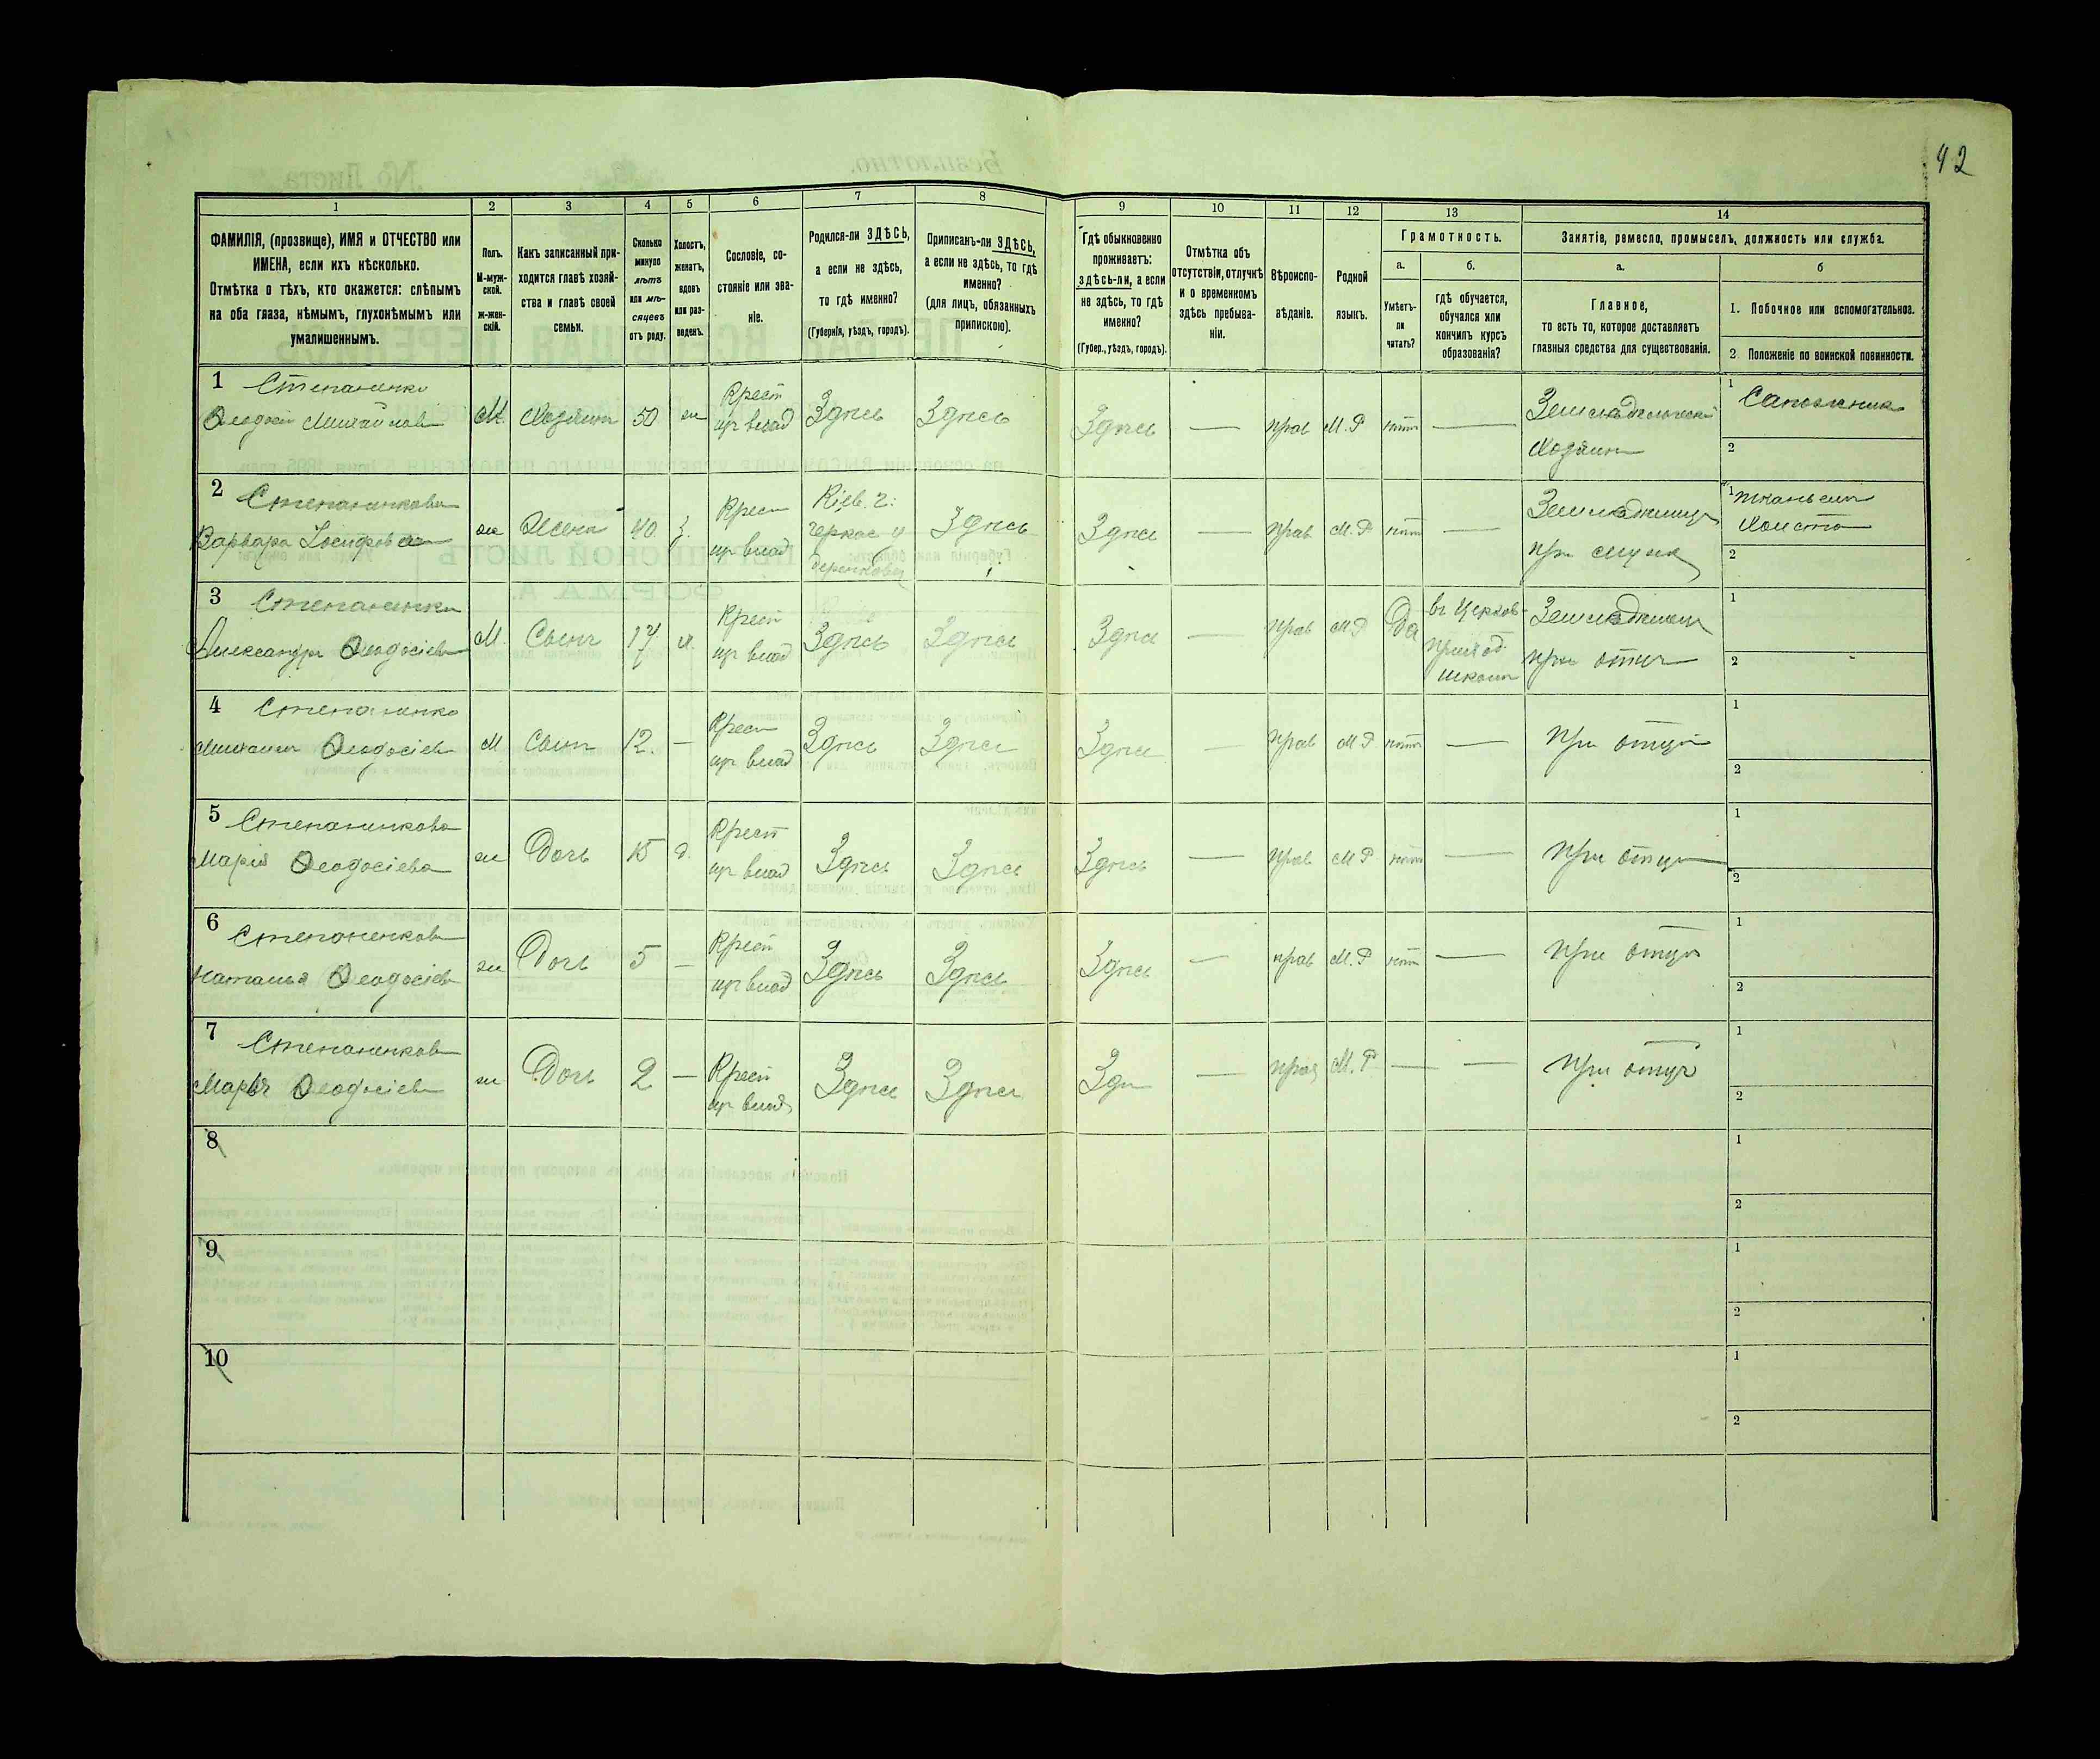 42
1
2
3
4
5
6
7
8
9
10
11
12
13
14
ФАМИЛІЯ, (прозвище), ИМЯ и ОТЧЕСТВО или
ИМЕНА, если ихъ нѣсколько.
Отмѣтка о тѣхъ, кто окажется: слѣпымъ
на оба глаза, нѣмымъ, глухонѣмымъ или
умалишеннымъ.
Полъ.
М-муж-
ской.
ж-жен-
скій.
Какъ записанный при-
ходится главѣ хозяй-
ства и главѣ своей
семьи.
Сколько
минуло
лѣтъ
или мѣ-
сяцевъ
отъ роду.
Холостъ,
женатъ,
вдовъ
или раз-
веденъ.
Сословіе, со-
стояніе или зва-
ніе.
Родился-ли ЗДѢСЬ,
а если не здѣсь,
то гдѣ именно?
(Губернія, уѣздъ, городъ).
Приписанъ-ли ЗДѢСЬ,
а если не здѣсь, то гдѣ
именно?
(для лицъ, обязанныхъ
припискою).
Гдѣ обыкновенно
проживаетъ:
здѣсь-ли, а если
не здѣсь, то гдѣ
именно?
(Губер., уѣздъ, городъ).
Отмѣтка объ
отсутствіи, отлучкѣ
и о временномъ
здѣсь пребыва-
ніи.
Вѣроиспо-
вѣданіе.
Родной
языкъ.
Грамотность.
а.
Умѣетъ-
ли
читать?
б.
гдѣ обучается,
обучался или
кончилъ курсъ
образованія?
Занятіе, ремесло, промыселъ, должность или служба.
а.
Главное,
то есть то, которое доставляетъ
главныя средства для существованія.
б
1. Побочное или вспомогательное.
2. Положеніе по воинской повинности.
1 Степаненко
Ѳеодосій Михайловъ
М. Хозяинъ 50 ж
Крест
др влад
Здѣсь Здѣсь Здѣсь — прав М.Р нѣтъ —
Земледѣлческій
Хозяинъ
1 Сапожникъ
2
2 Степаненкова
Варвара Іосифовна
ж Жена 40 з.
Крест
др влад
Кіев. г.
Черкас у
Здѣсь Здѣсь — прав М.Р нѣтъ —
Земледѣлица
при мужѣ
1 тканьемъ
холста
2
3 Степаненко
Александръ Ѳеодосіевъ
М. Сынъ 17 х.
Крест
др влад
Здѣсь Здѣсь Здѣсь — прав М.Р Да
въ Церков-
приход
школѣ
Земледѣлецъ
при отцѣ
1
2
4 Степаненко
Михаилъ Ѳеодосіевъ
М Сынъ 12. —
Крест
др влад
Здѣсь Здѣсь Здѣсь — прав М.Р нѣтъ — при отцѣ
1
2
5 Степаненкова
Марія Ѳеодосіева
ж Дочь 15 д.
Крест
др влад
Здѣсь Здѣсь Здѣсь — прав М.Р нѣтъ — при отцѣ
1
2
6 Степаненкова
Наталья Ѳеодосіева
ж Дочь 5 —
Крест
др влад
Здѣсь Здѣсь Здѣсь — прав М.Р нѣтъ — при отцѣ
1
2
7 Степаненкова
Ѳеодосіева
ж Дочь 2 —
Крест
др влад
Здѣсь Здѣсь Здѣ — прав М.Р — — при отцѣ
1
2
8
1
2
9
1
2
10
1
2